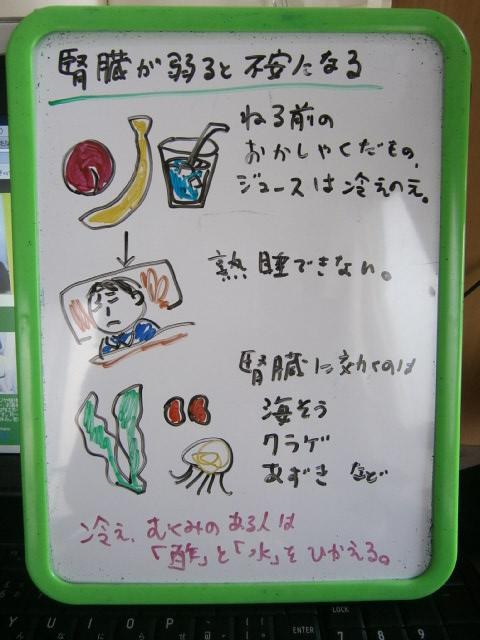 腎臓が弱ると不安になる
ねる前の
おかしやくだもの、
ジュースは冷えのモト。
熟睡できない。
腎臓に効くのは
海そう
クラゲ
あずき など
冷え、むくみのある人は
「酢」と「水」をひかえる。
Y U I O P
ENTER
LOCK
7 8 9